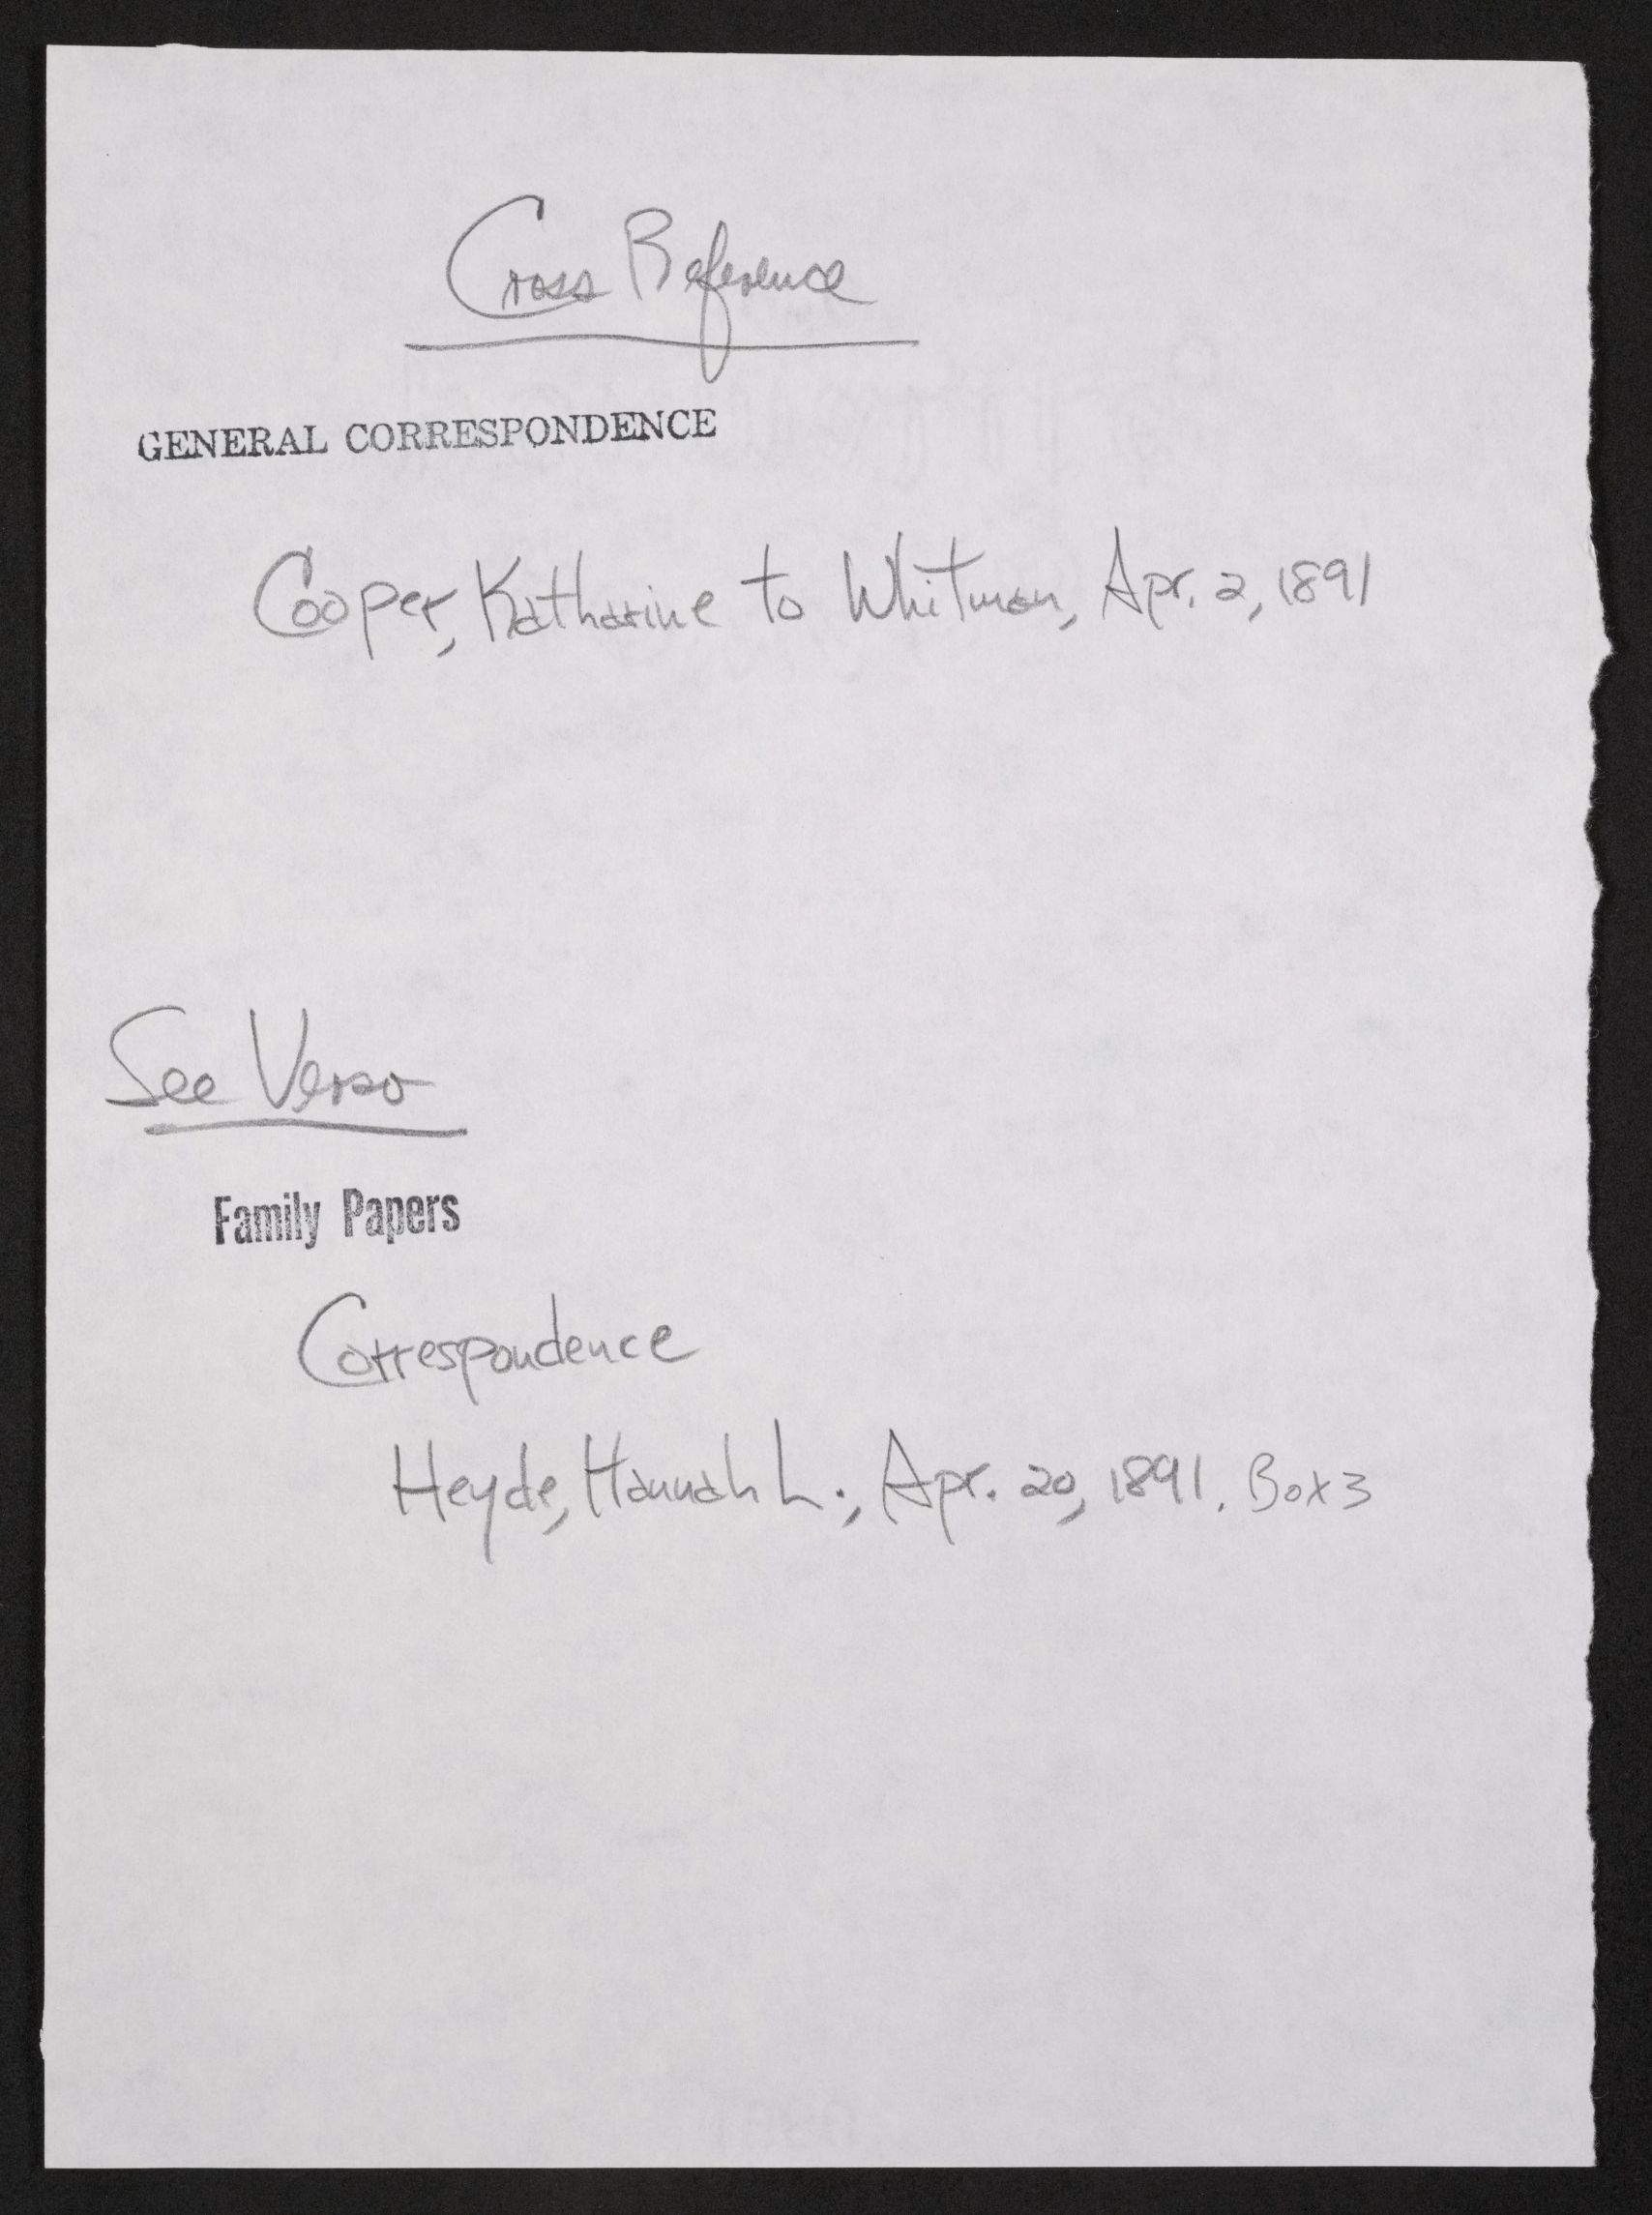 Cross Reference
GENERAL CORRESPONDENCE
Cooper, Katharine to Whitman, Apr. 2, 1891
See Verso
Family Papers
Correspondence
Heyde, Hannah L., Apr. 20, 1891. Box 3